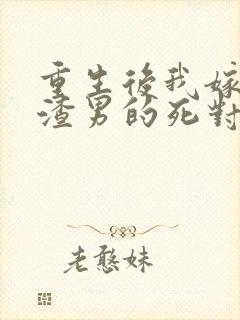 重生後我嫁
渣男的死對
老憨妹